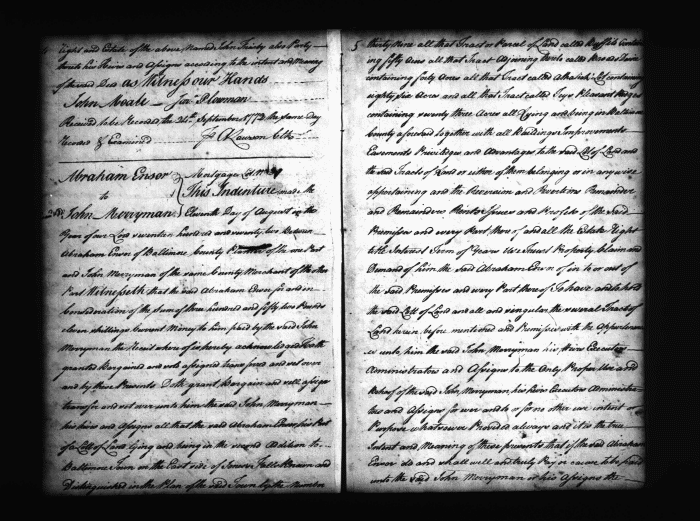 Right and Estate of the above Named John Fristy also Party
thereto his Heirs and Assigns according to the intent and Meaning
of the said Deed As Witness our Hands
John Moale Jas. Plowman
Received to be Recorded the 24th September 1772 the same day
Recorded & Examined A Lawson Clk
Abraham Ensor Mortgage
to This Indenture made the
John Merryman Eleventh Day of August in the
Year of our Lord seventeen hundred and seventy two Between
Abraham Ensor of Baltimore County of the one Part
and John Merryman of the same County Merchant of the other
Part Witnesseth that the said Abraham Ensor for and in
Consideration of the sum of three hundred and fifty two Pounds
eleven shillings Current Money to him paid by the said John
Merryman the Receipt whereof is hereby acknowledged hath
granted Bargained and sold assigned transferred and set over
and by these Presents Doth grant Bargain and sell assign
transfer and set over unto him the said John Merryman
his heirs and Assigns all that the said Abraham Ensor his Part
of a Lot of Land lying and being in the second Addition to
Baltimore Town on the East side of Jones's Falls Known and
Distinguished in the Plan of the said Town by the Number
5 thirty Nine all that Tract or Parcel of Land called
ing fifty Acres all that Tract Adjoining thereto called
containing forty Acres all that Tract called containing
eighty five Acres and all that Tract called
containing seventy three Acres all Lying and being in Baltimore
County aforesaid together with all Buildings Improvements
Easements Priviledges and Advantages to the said Lot of Land and
the said Tracts of Land or either of them belonging or in any wise
appertaining and the Reversion and Reversions Remainder
and Remainders Rents Issues and Profits of the said
Premises and every Part thereof and all the Estate Right
title Interest Term of Years Use Trust Property Claim and
Demand of him the said Abraham Ensor of in to or out of
the said Premises and every Part thereof To have and to hold
the said Lott of Land and all and singular the several Tracts of
Land herein before mentioned and Premises with the Appurtenan
ces unto him the said John Merryman his Heirs Executors
Administrators and Assigns to the Only Proper Use and
Behoof of the said John Merryman his Heirs Executors Administra
tors and Assigns for ever and to or for no other use intent or
Purpose whatsoever Provided always and it is the true
Intent and Meaning of these presents that if the said Abraham
Ensor do and shall well and truly Pay or cause to be paid
unto the said John Merryman or his Assigns the